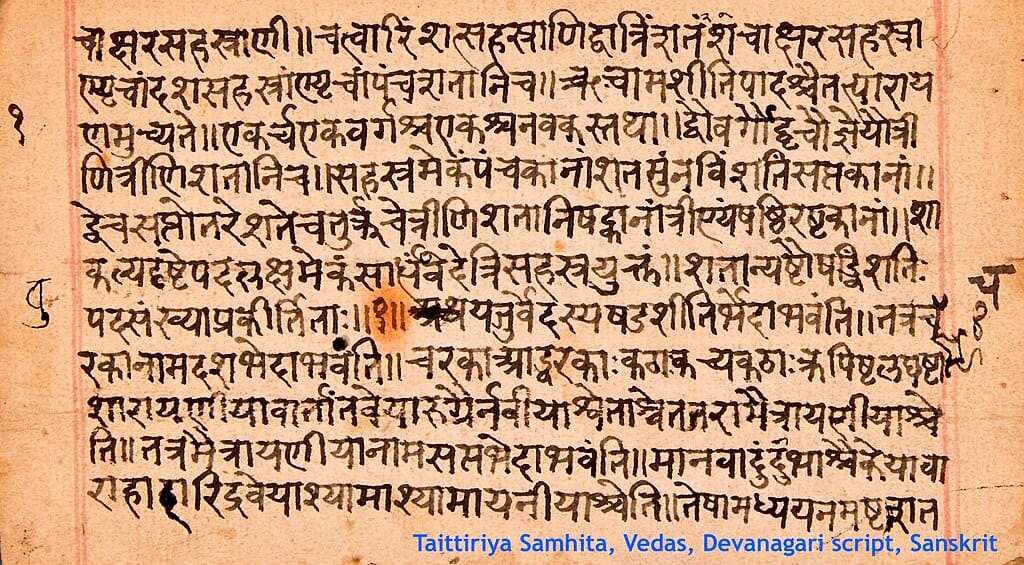 चाक्षरसहस्राणी॥चत्वारिंशत्सहस्राणिद्वात्रिंशतंशंचाक्षरसहस्रा
ण्यृचांदशसहस्रांण्यृचांपंचशतानिच॥ऋचामशीतिपादश्चैतत्पाराय
१
णमुच्यते॥एकर्चएकवर्गश्चएकश्चनवकस्तथा॥द्वौवर्गौद्वृचौज्ञेयौत्री
णित्रीणिशतानिच॥सहस्रमेकंपंचकानांशतसुंनविंशतिसप्तकानां॥
द्वेचसप्तोतरेशतेचतुर्ऋचेत्रीणिशतानिषट्कानांत्रीण्यंषष्ठिरष्टकानां॥शा
कल्यदृष्टेपदलक्षमेकंसार्धं त्रिसहस्रयुक्तं॥शतान्यष्टौषड्विंशतिः
पदसंख्याप्रकीर्तिताः॥१॥अथयजुर्वेदस्यषडशीतिर्भेदाभवंति॥तत्रच
रकानामदशभेदाभवंति॥चरकाआह्वरकाःकठाकच्यकठाः
शारायणीयावार्तांतवेया श्वेताश्वेततरामैत्रायणीयाश्चे
ति॥तत्रमैत्रायणीयानामसप्तभेदाभवंति॥मानवादुंदुभाश्चैकेयावा
राहाहारिद्रवेयाश्यामाश्यामायनीयाश्चेति॥तेषामध्ययनमष्टशत
Taittiriya Samhita, Vedas, Devanagari script, Sanskrit